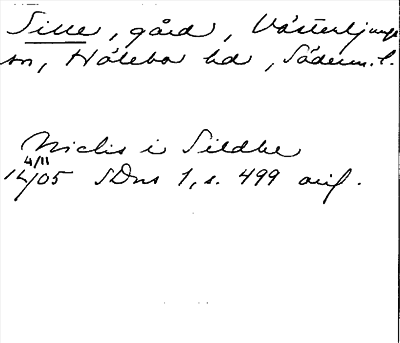 Sille, gård, Västerljungs
sn, Hölebo hd, Söderm. l.
Niclis i Sildhe
4/11
1405 SDns 1, s. 499 avif.